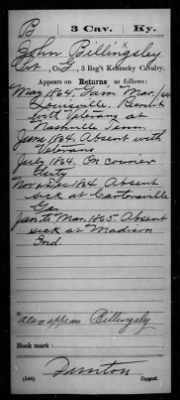 B 3 Cav. Ky.
John Billingsley
Pvt, Co. G, 3 Reg't Kentucky Cavalry.
Appears on Returns as follows:
May 1864. From Mar. /64
Louisville. Recruit
with Veterans at
Nashville Tenn.
June 1864. Absent with
Veterans
July 1864. On courier
duty
Nov & Dec 1864, Absent
sick at Cartersville
Ga.
Jan to Mar. 1865. Absent
sick at Madison
Ind.
Also appears Billingsly
Book mark:
(546) Copyist.